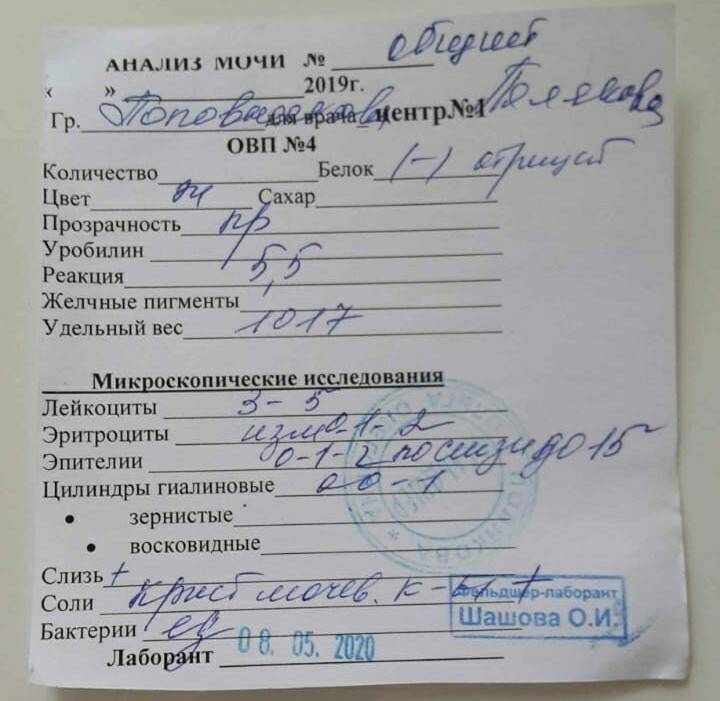 АНАЛИЗ МОЧИ № общий
« » 2019г.
Гр. для врача центр№1 Полякова
ОВП №4
Количество Белок (-) отрицат
Цвет Сахар
Прозрачность пр
Уробилин
Реакция 5,5
Желчные пигменты
Удельный вес 1017
Микроскопические исследования
Лейкоциты 3-5
Эритроциты изм 0-1-2
Эпителии 0-1-2 по слизи до 15
Цилиндры гиалиновые 0-1
• зернистые
• восковидные
Слизь +
Соли крист мочев. к-ты +
Фельдшер-лаборант
Шашова О.И.
Бактерии ед
Лаборант 08. 05. 2020
ПОЛЯКОВА